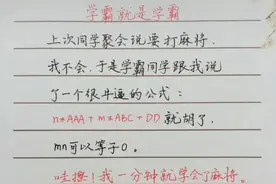 学霸就是学霸
上次同学聚会说要打麻将,
我不会,于是学霸同学跟我说
了一个很牛逼的公式:
n*AAA+m*ABC+DD 就胡了.
mn可以等于0。
哇擦!我一分钟就学会了麻将。